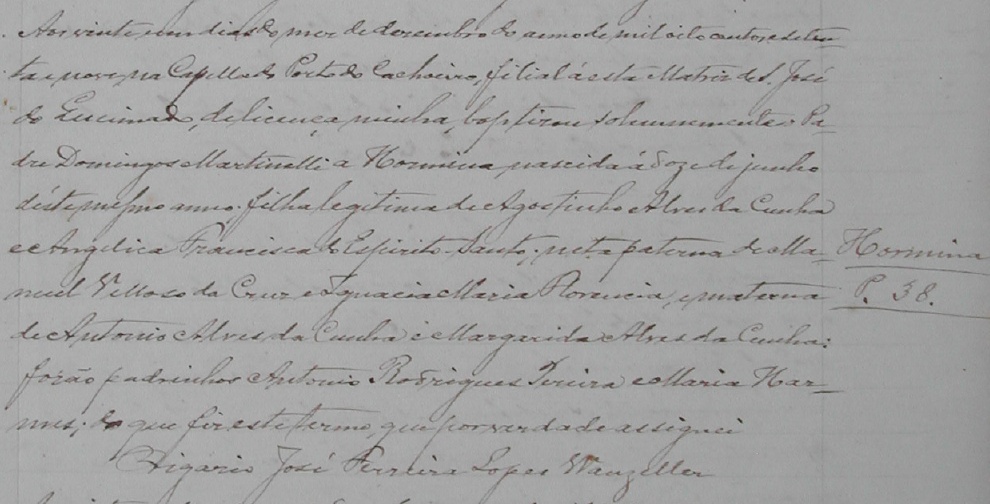 Aos vinte e um dias do mez de dezembro do anno de mil oito centos e seten-
ta e nove, na Capella do Porto do Cachoeiro, filial á esta Matriz de S. José
do Queimado, de licença minha, baptizou solemnemente o Pa-
dre Domingos Martinelli a Hormina, nascida á doze de junho
d'este mesmo anno, filha legitima de Agostinho Alves da Cunha
e Angelica Francisca do Espirito-Santo; neta paterna de Ma-
noel Velloso da Cruz e Ignacia Maria Florencia, e materna
de Antonio Alves da Cunha e Margarida Alves da Cunha:
forão padrinhos Antonio Rodrigues Pereira e Maria Har-
mes; do que fiz este termo, que por verdade assignei
Vigario José Ferreira Lopes Wanzeller
Hormina
P. 38.